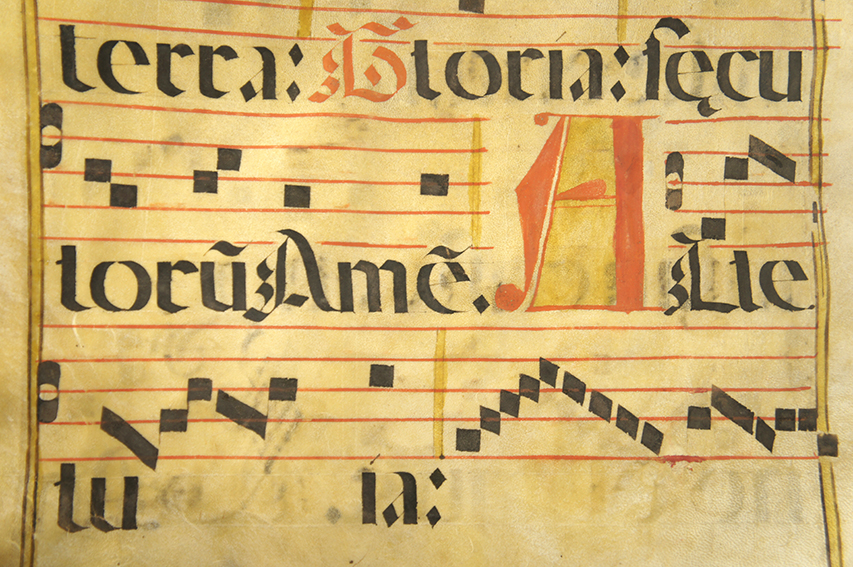 terra: Gloria: sęcu
lorū Amē. A Lle
lu ia: